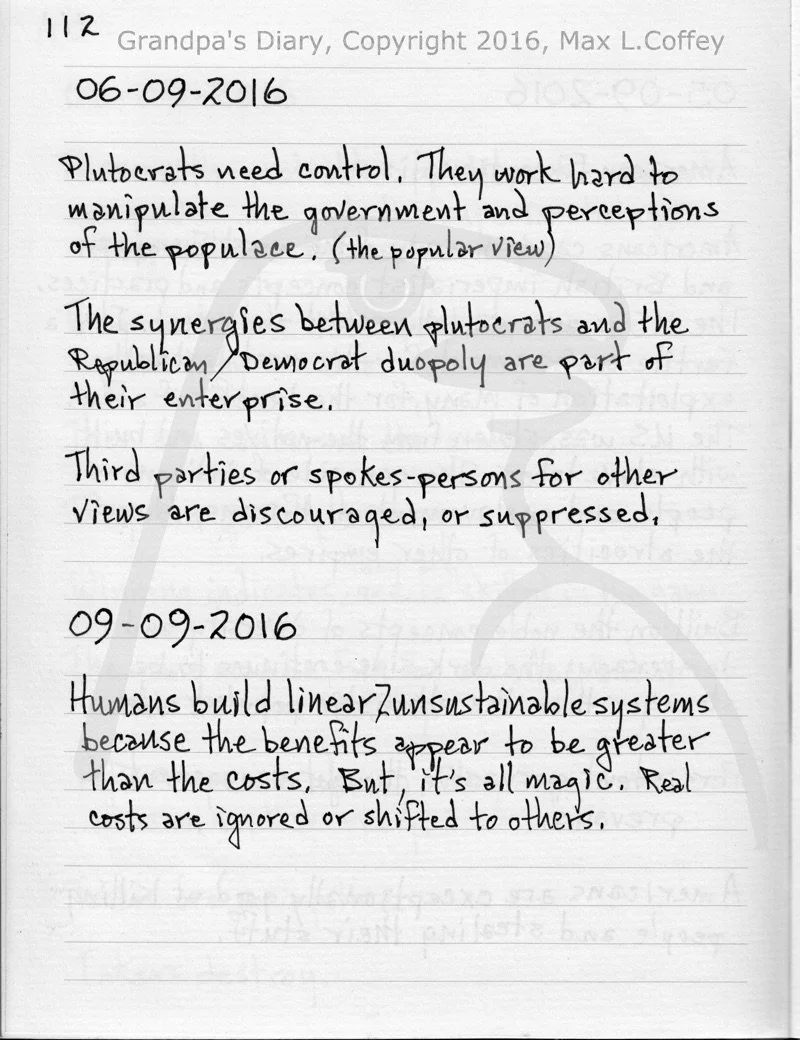 112
Grandpa's Diary, Copyright 2016, Max L.Coffey
06-09-2016
Plutocrats need control. They work hard to
manipulate the government and perceptions
of the populace. (the popular view)
The synergies between plutocrats and the
Republican/Democrat duopoly are part of
their enterprise.
Third parties or spokes-persons for other
views are discouraged, or suppressed.
09-09-2016
Humans build linear/unsustainable systems
because the benefits appear to be greater
than the costs. But, it's all magic. Real
costs are ignored or shifted to others.